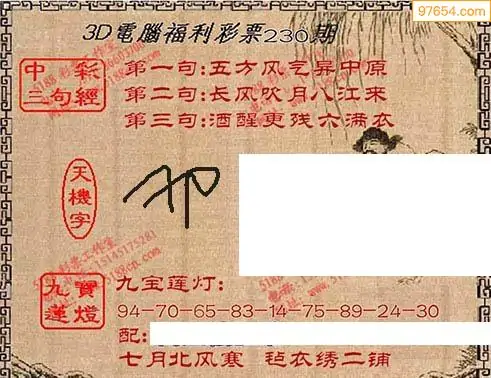 97654.com
3D電腦福利彩票230期
中彩
三句經
第一句:五方风气异中原
第二句:长风吹月八江来
第三句:酒醒更残六满衣
天機字
九寶
蓮燈
九宝莲灯:
94-70-65-83-14-75-89-24-30
配:
七月北风寒 毡衣绣二铺